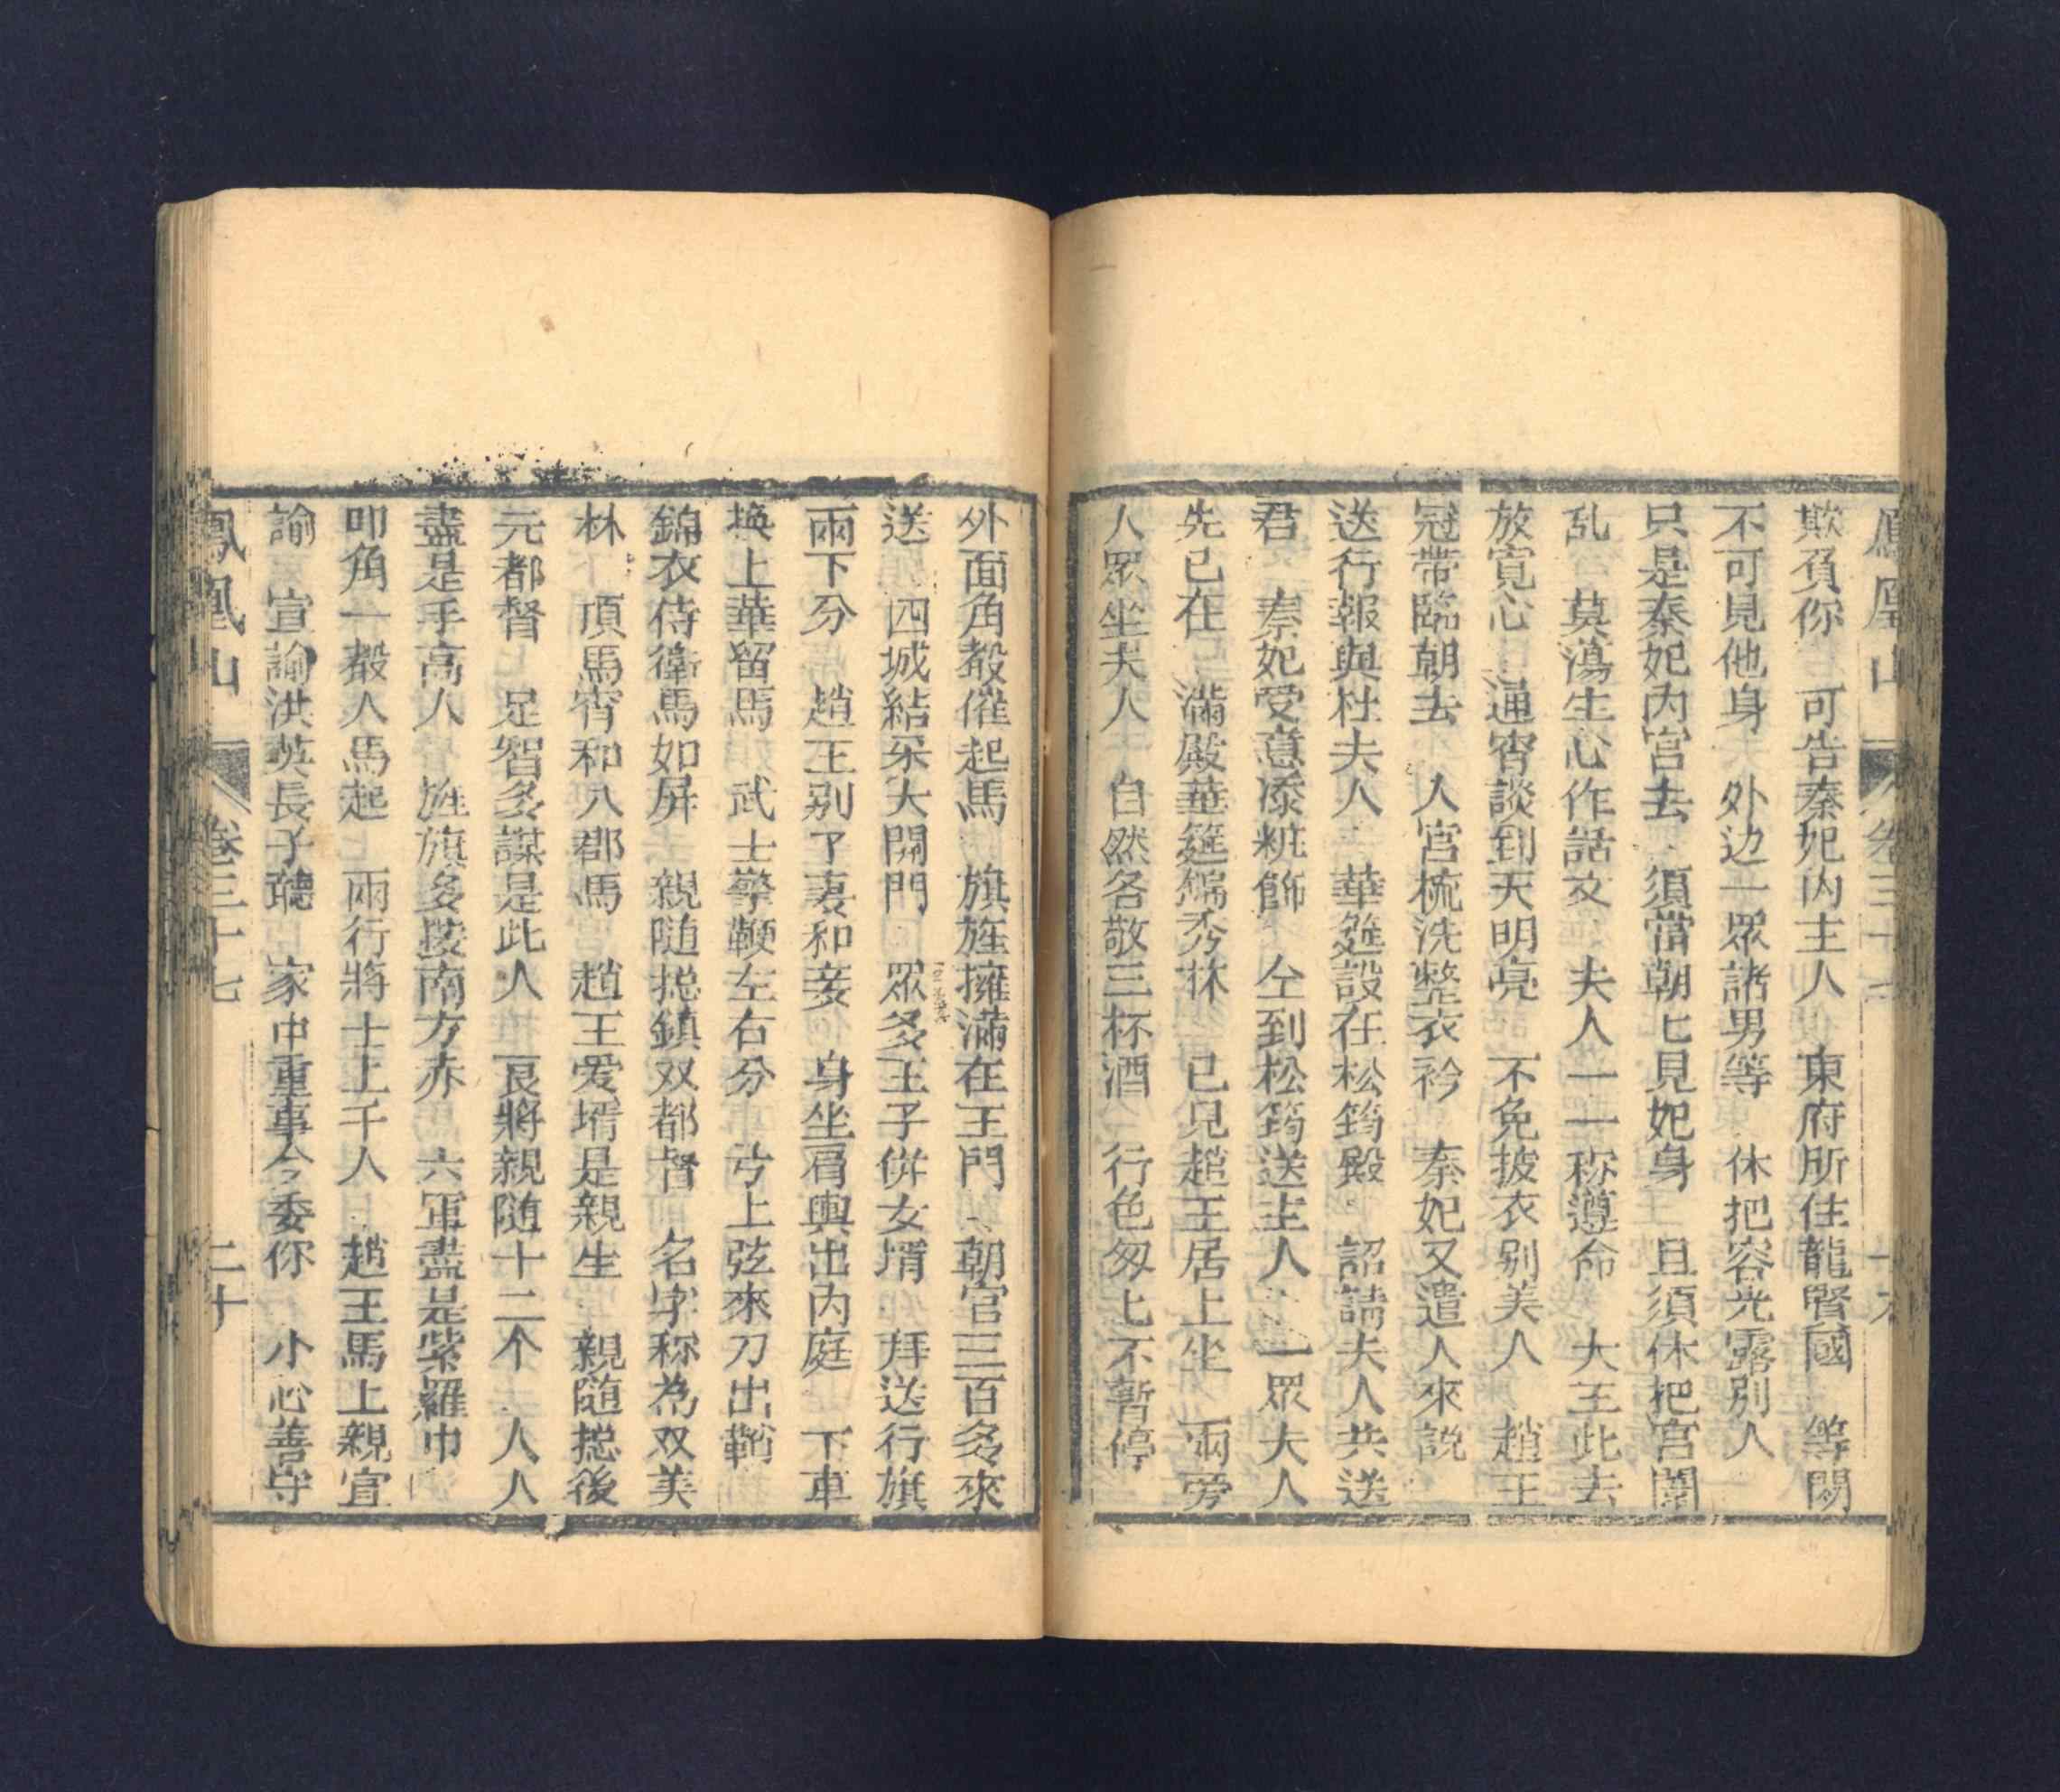 鳳凰山 卷三十七 十九
欺負你 可告秦妃内主人 東府所住龍賢國 等閑
不可見他身 外边一眾諸男等 休把容光露別人
只是秦妃内宮去 須當朝匕見妃身 且須休把宮闈
乱 莫蕩生心作話文 夫人一一称遵命 大王此去
放寛心 通宵談到天明亮 不免披衣别美人 趙王
冠帶臨朝去 人宮梳洗整衣衿 秦妃又遣人來説
送行報與杜夫人 華筵設在松筠殿 詔請夫人共送
君 秦妃受意添粧飾 仝到松筠送主人 一眾夫人
先已在 滿殿華筵綿秀牀 已見趙王居上坐 兩旁
人眾坐夫人 自然各敬三杯酒 行色匆匕不暫停
外面角聲催起馬 旗旌擁滿在王門 朝官三百多來
送 四城結采大開門 眾多王子併女壻 拜送行旗
兩下分 趙王别了妻和妾 身坐肩輿出内庭 下車
换上華留馬 武士擎鞭左右分 弓上弦來刀出鞘
錦衣侍衛馬如屏 親随捴鎮双都督 名字称為双美
林 頂馬宵和八郡馬 趙王爱壻是親生 親随捴後
元都督 足智多謀是此人 良將親随十二个 人人
盡是手高人 旌旗多按南方赤 六軍盡是紫羅巾
叩角一聲人馬起 兩行將士上千人 趙王馬上親宣
諭 宣諭洪英長子聽 家中重事今委你 小心善守
鳳凰山 卷三十七 二十